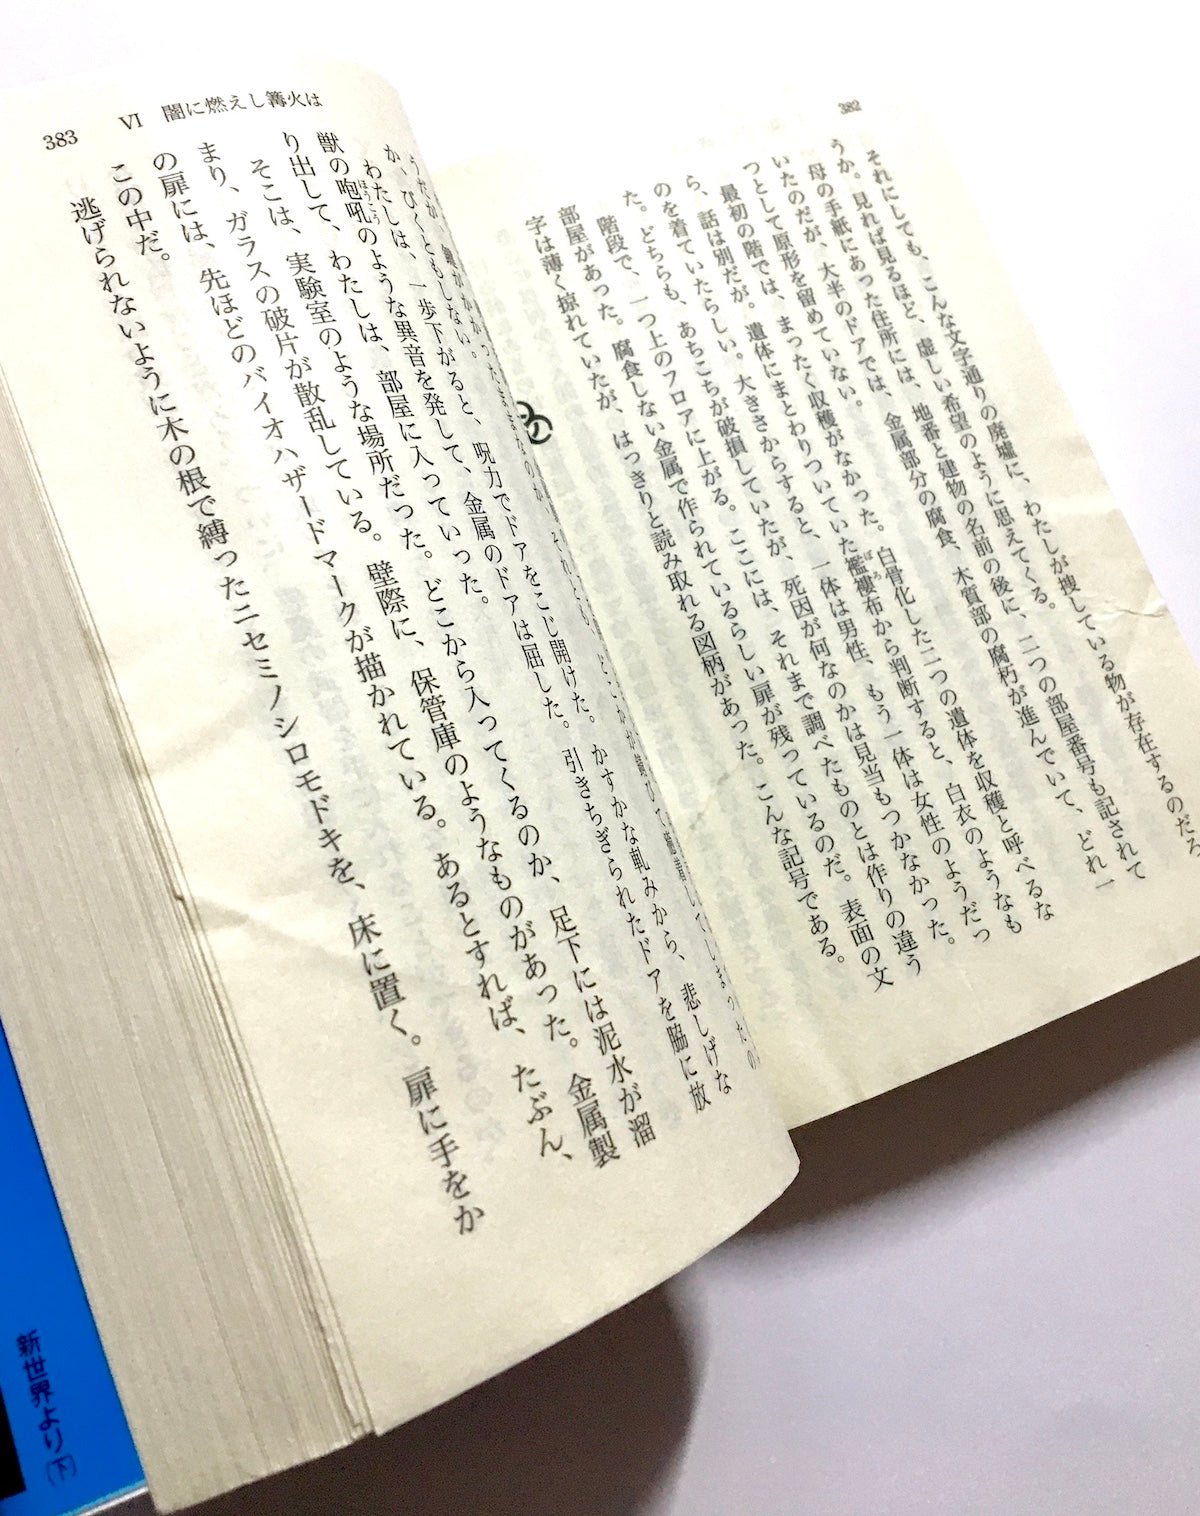 382
それにしても、こんな文字通りの廃墟に、わたしが捜している物が存在するのだろ
うか。見れば見るほど、虚しい希望のように思えてくる。
母の手紙にあった住所には、地番と建物の名前の後に、二つの部屋番号も記されて
いたのだが、大半のドアでは、金属部分の腐食、木質部の腐朽が進んでいて、どれ一
つとして原形を留めていない。
最初の階では、まったく収穫がなかった。白骨化した二つの遺体を収穫と呼べるな
ら、話は別だが。遺体にまとわりついていた襤褸布から判断すると、白衣のようなも
のを着ていたらしい。大きさからすると、一体は男性、もう一体は女性のようだっ
た。どちらも、あちこちが破損していたが、死因が何なのかは見当もつかなかった。
階段で、一つ上のフロアに上がる。ここには、それまで調べたものとは作りの違う
部屋があった。腐食しない金属で作られているらしい扉が残っているのだ。表面の文
字は薄く掠れていたが、はっきりと読み取れる図柄があった。こんな記号である。
383
VI 闇に燃えし篝火は
か、びくともしない。
わたしは、一歩下がると、呪力でドアをこじ開けた。かすかな軋みから、悲しげな
獣の咆吼のような異音を発して、金属のドアは屈した。引きちぎられたドアを脇に放
り出して、わたしは、部屋に入っていった。
そこは、実験室のような場所だった。どこから入ってくるのか、足下には泥水が溜
まり、ガラスの破片が散乱している。壁際に、保管庫のようなものがあった。金属製
の扉には、先ほどのバイオハザードマークが描かれている。あるとすれば、たぶん、
この中だ。
逃げられないように木の根で縛ったニセミノシロモドキを、床に置く。扉に手をか
新世界より(下)